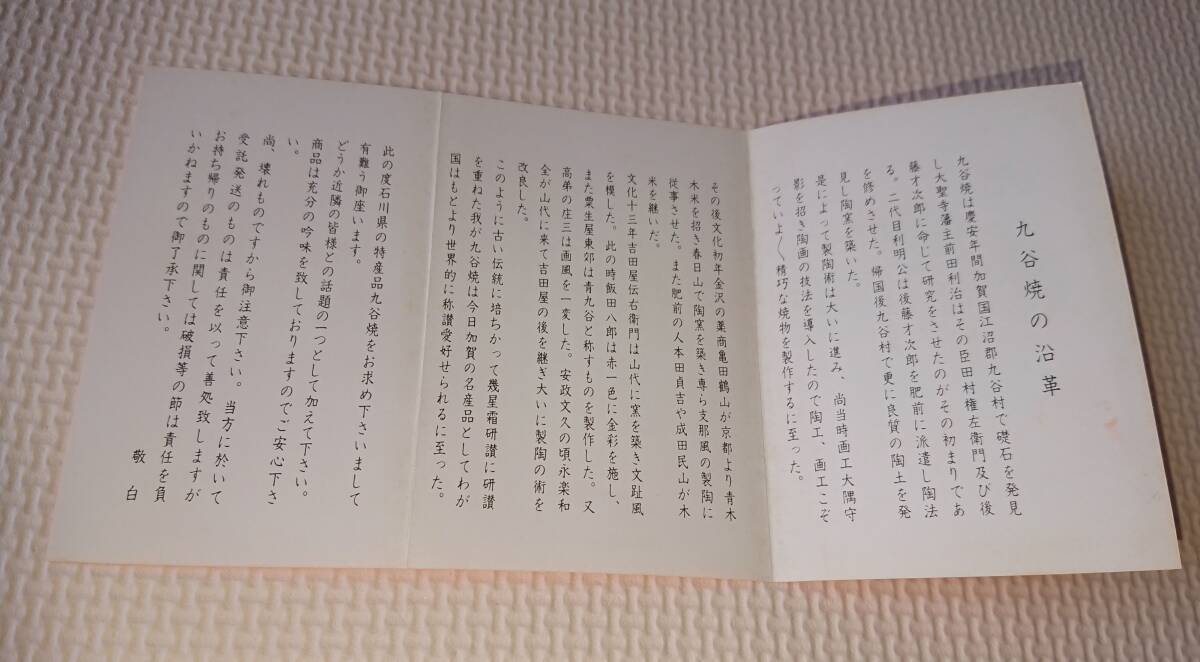 九谷焼の沿革
九谷焼は慶安年間加賀国江沼郡九谷村で礎石を発見
し大聖寺藩主前田利治はその臣田村権左衛門及び後
藤才次郎に命じて研究をさせたのがその初まりであ
る。二代目利明公は後藤才次郎を肥前に派遣し陶法
を修めさせた。帰国後九谷村で更に良質の陶土を発
見し陶窯を築いた。
是によって製陶術は大いに進み、尚当時画工大隅守
影を招き陶画の技法を導入したので陶工、画工こぞ
っていよ〳〵精巧な焼物を製作するに至った。
その後文化初年金沢の薬商亀田鶴山が京都より青木
木米を招き春日山で陶窯を築き専ら支那風の製陶に
従事させた。また肥前の人本田貞吉や成田民山が木
米を継いだ。
文化十三年吉田屋伝右衛門は山代に窯を築き文趾風
を模した。此の時飯田八郎は赤一色に金彩を施し、
また粟生屋東郊は青九谷と称すものを製作した。又
高弟の庄三は画風を一変した。安政文久の頃永楽和
全が山代に来て吉田屋の後を継ぎ大いに製陶の術を
改良した。
このように古い伝統に培ちかって幾星霜研讃に研讃
を重ねた我が九谷焼は今日加賀の名産品としてわが
国はもとより世界的に称讃愛好せられるに至った。
此の度石川県の特産品九谷焼をお求め下さいまして
有難う御座います。
どうか近隣の皆様との話題の一つとして加えて下さい。
商品は充分の吟味を致しておりますのでご安心下さ
い。
尚、壊れものですから御注意下さい。当方に於いて
受託発送のものは責任を以って善処致しますが
お持ち帰りのものに関しては破損等の節は責任を負
いかねますので御了承下さい。
敬白